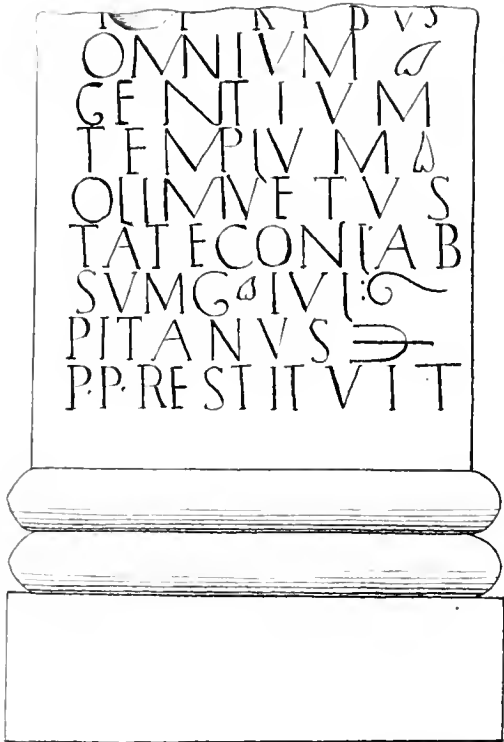 OMNIVM
GENTIVM
TEMPLVM
OLIM VETVS
TATE CONLAB
SVM G IVL
PITANVS
P·P· RESTITVIT